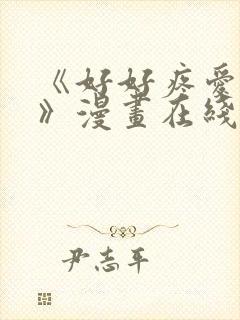 《好好疼愛
》漫畫在綫
尹志平